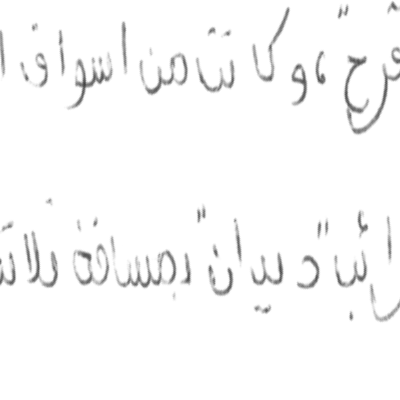 قرح"، وكانت من اسواق ا
رائب "د بيدان" بمسافة ثلاثة